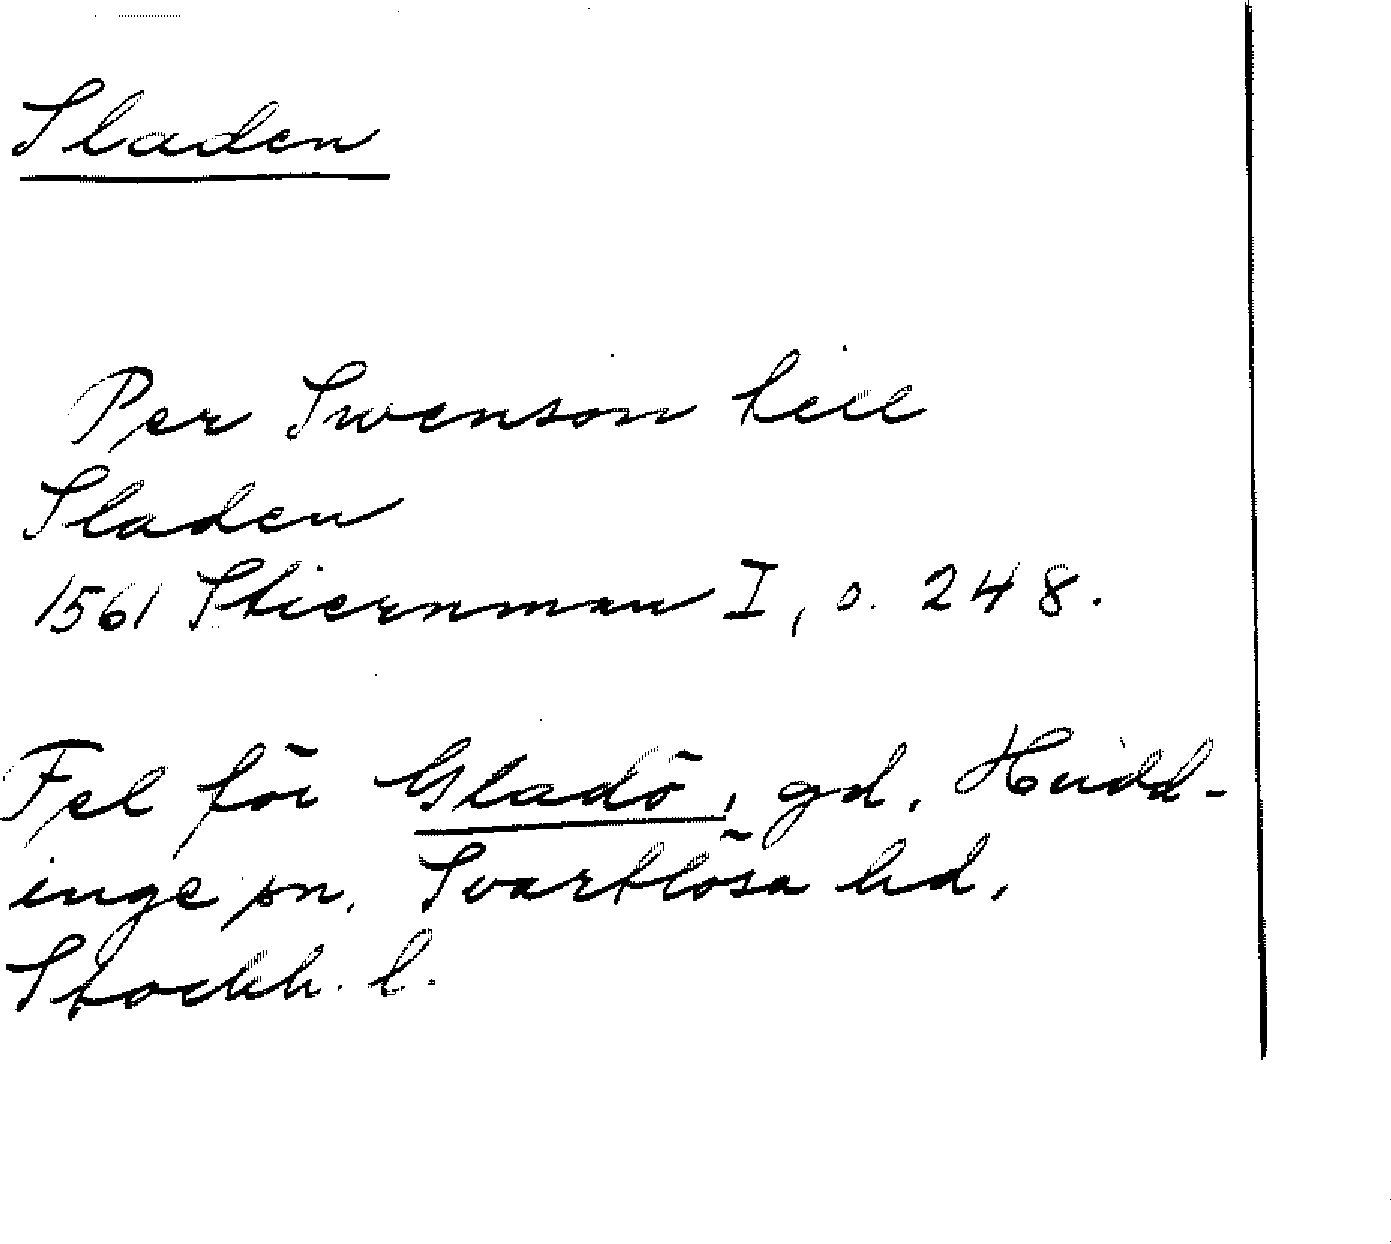 Sladen
Per Swenson till
Sladen
1561 Stiernman I, s. 248.
Fel för Gladö, gd. Hudd-
inge sn. Svartlösa hd.
Stockh. l.